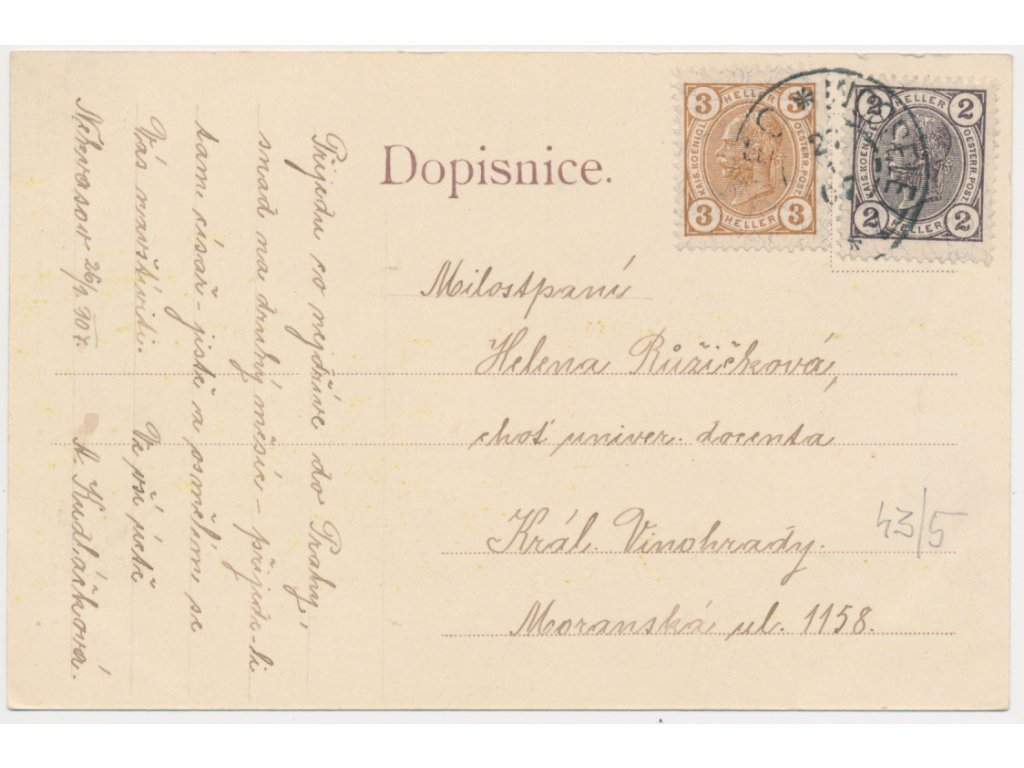 Dopisnice.
3 HELLER 3
KAIS. KOENIGL.
OESTERR. POST.
3 HELLER 3
2 HELLER 2
KAIS. KOENIGL.
OESTERR. POST.
2 HELLER 2
Milostpaní
Helena Růžičková,
choť univer. docenta
Král. Vinohrady.
Moranská ul. 1158.
43/5
Přijedu co nejdříve do Prahy,
snad na druhý měsíc – přijede-li
tam císař – jistě a osmělím se
Vás navštíviti.
Ve vší úctě
26/1. 907. A. Kudláčková.